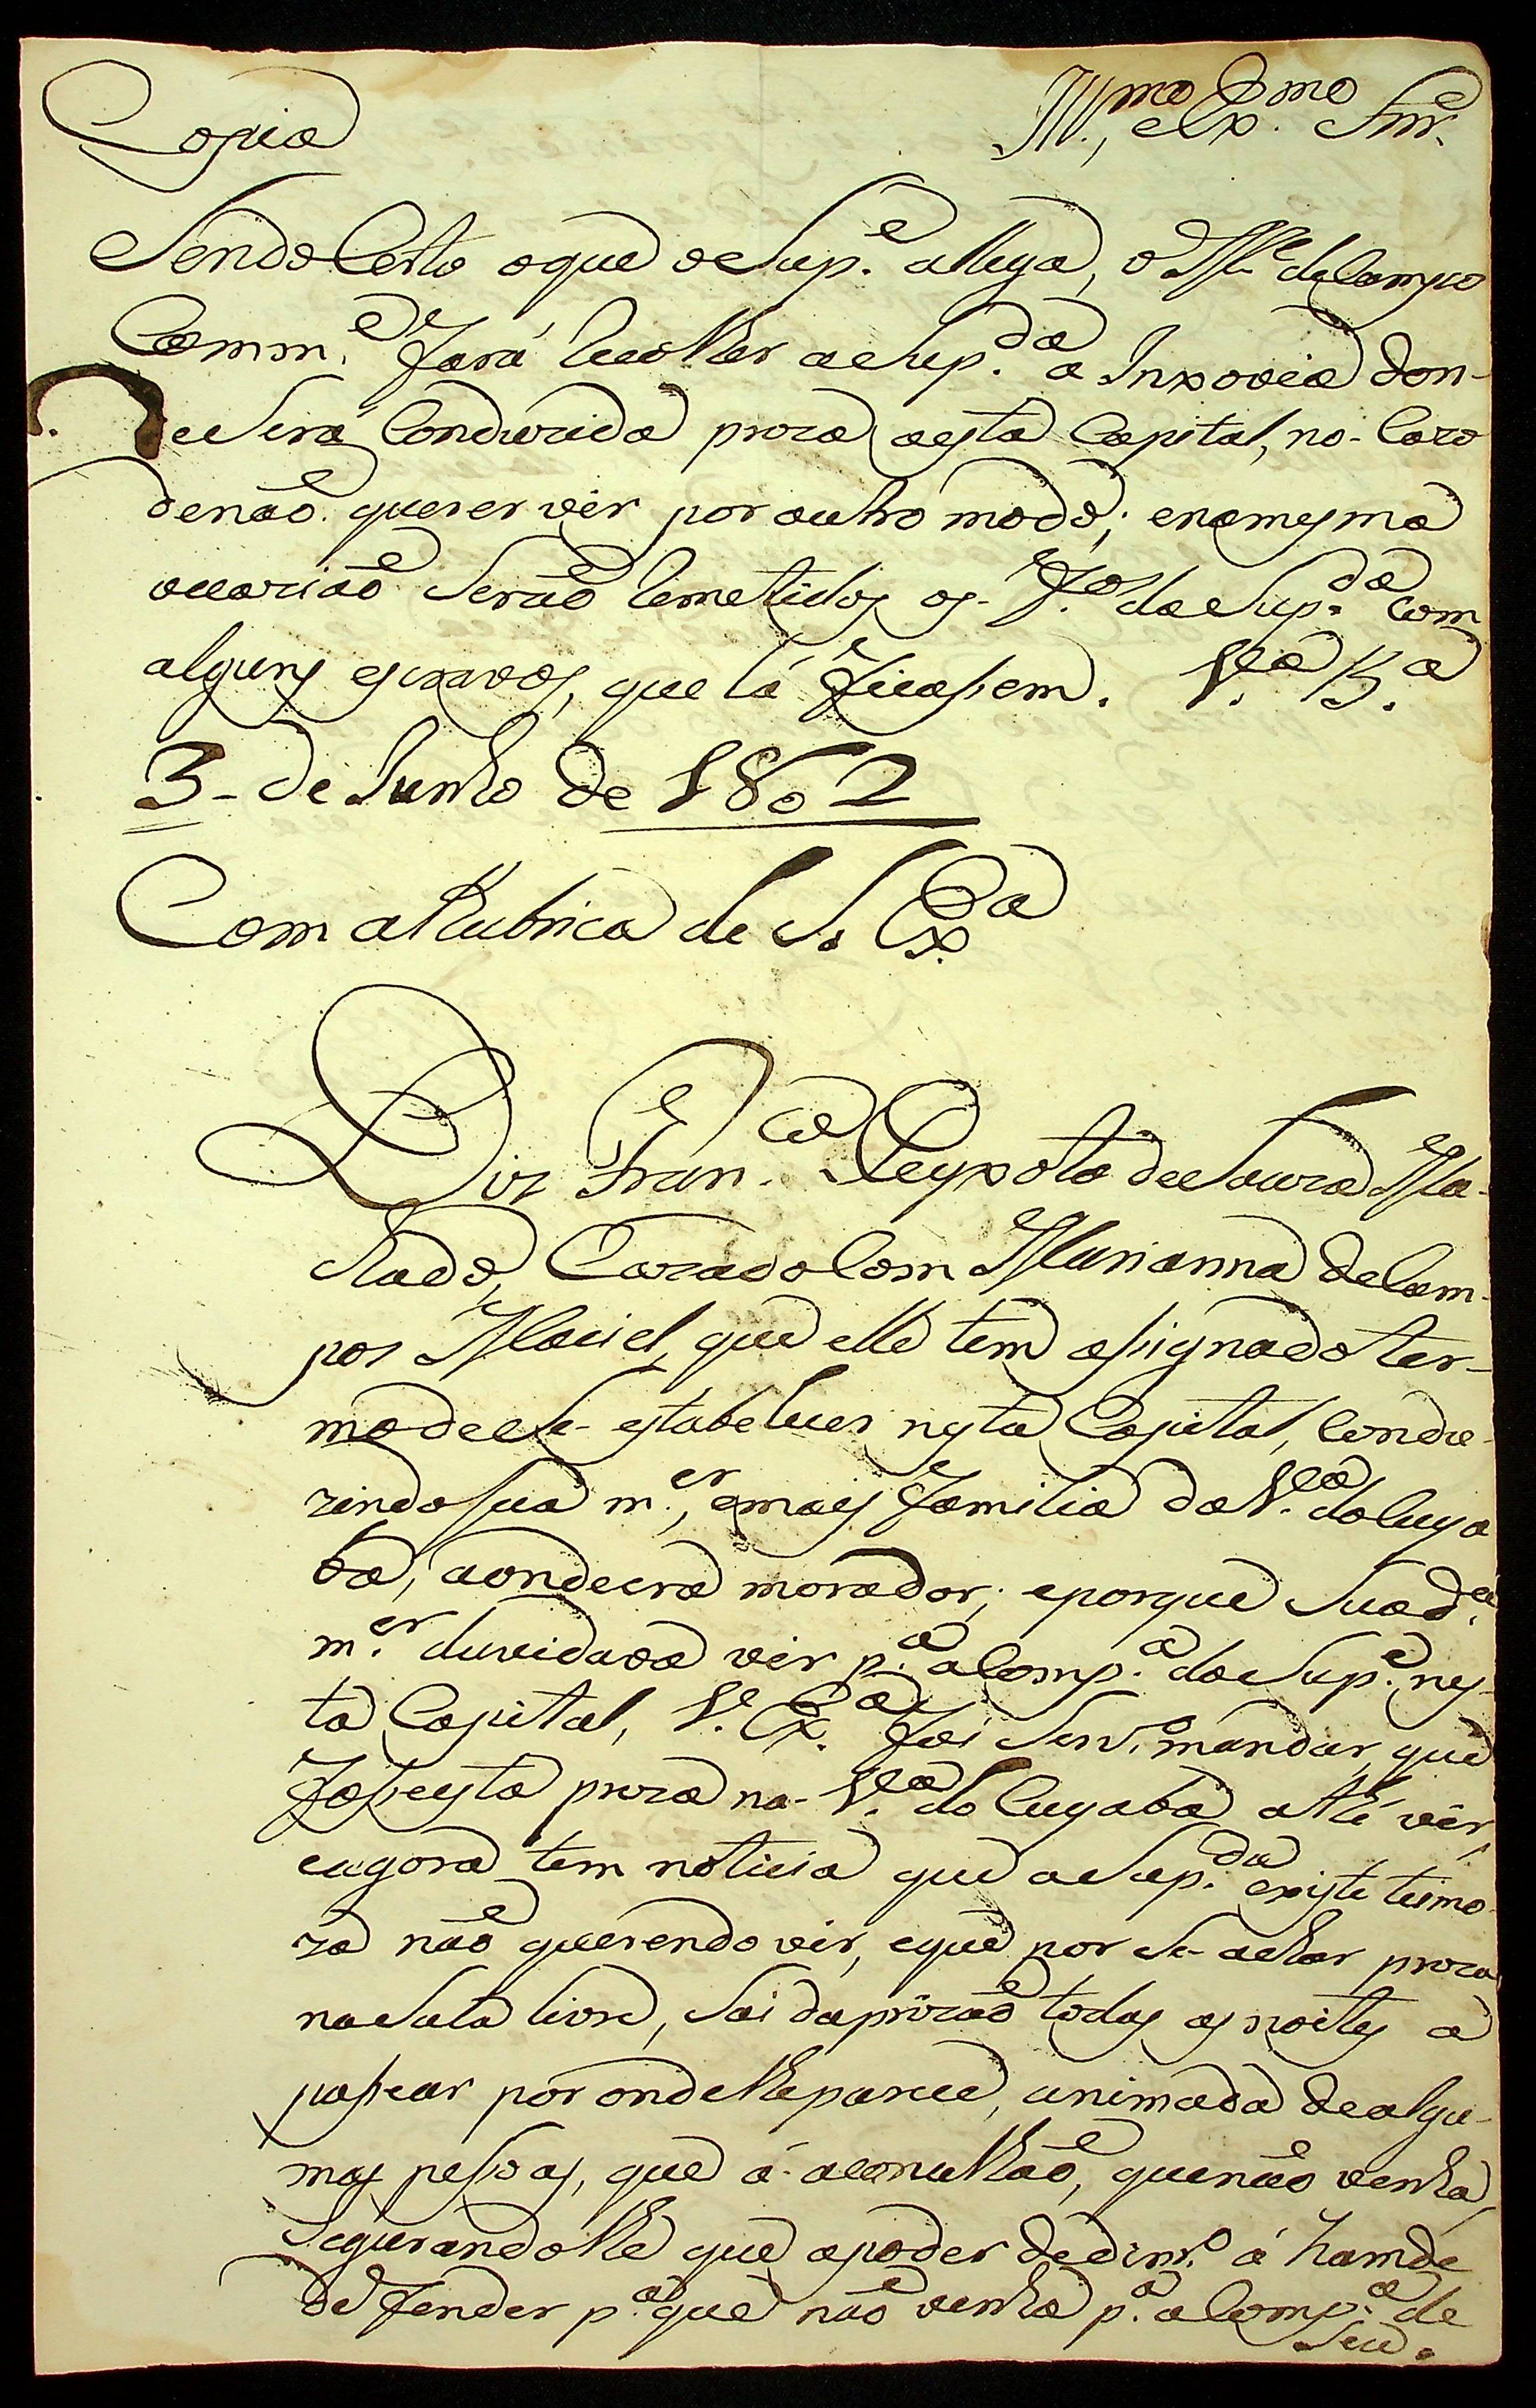 Copia
Ill.mo, e Ex.mo Snr.
Sendo Certo o que o Sup.e allega, o M.e de Campo
Comm.e fará recolher a Sup.da a Inxovia don-
de Será Conduzida preza a esta Capital, no Cazo
de não querer vir por outro modo; e na mesma
occazião Serão remetidos os f.os da Sup.da com
alguns escravos, que lá ficassem. V.a B.a
3 de Junho de 1802
Com a Rubrica de S. Ex.a
Diz Fran.co Peyxoto de Souza Ma-
chado, Cazado Com Marianna de Cam-
pos Maciel, que elle tem assignado ter-
mo de se estabelecer nesta Capital, Condu-
zindo sua m.er, e mais familia da V.a do Cuya
bá, aonde era morador; e porque Sua d.a
m.er duvidava vir p.a a Comp.a do Sup.e nes-
ta Capital, V. Ex.a foi Serv.o mandar, que
fosse esta preza na V.a do Cuyabá athé vir,
e agora tem noticia que a Sup.da existe teimo
za não querendo vir, e que por se achar preza
na Sala livre, Sai da prizão todas as noites a
passear por onde lhe parece, animada de algu-
mas pessoas, que á aconselhão, que não venha,
Segurandolhe que a poder de dinr.o á hamde
defender p.a que não venha p.a a Comp.a de
Seu